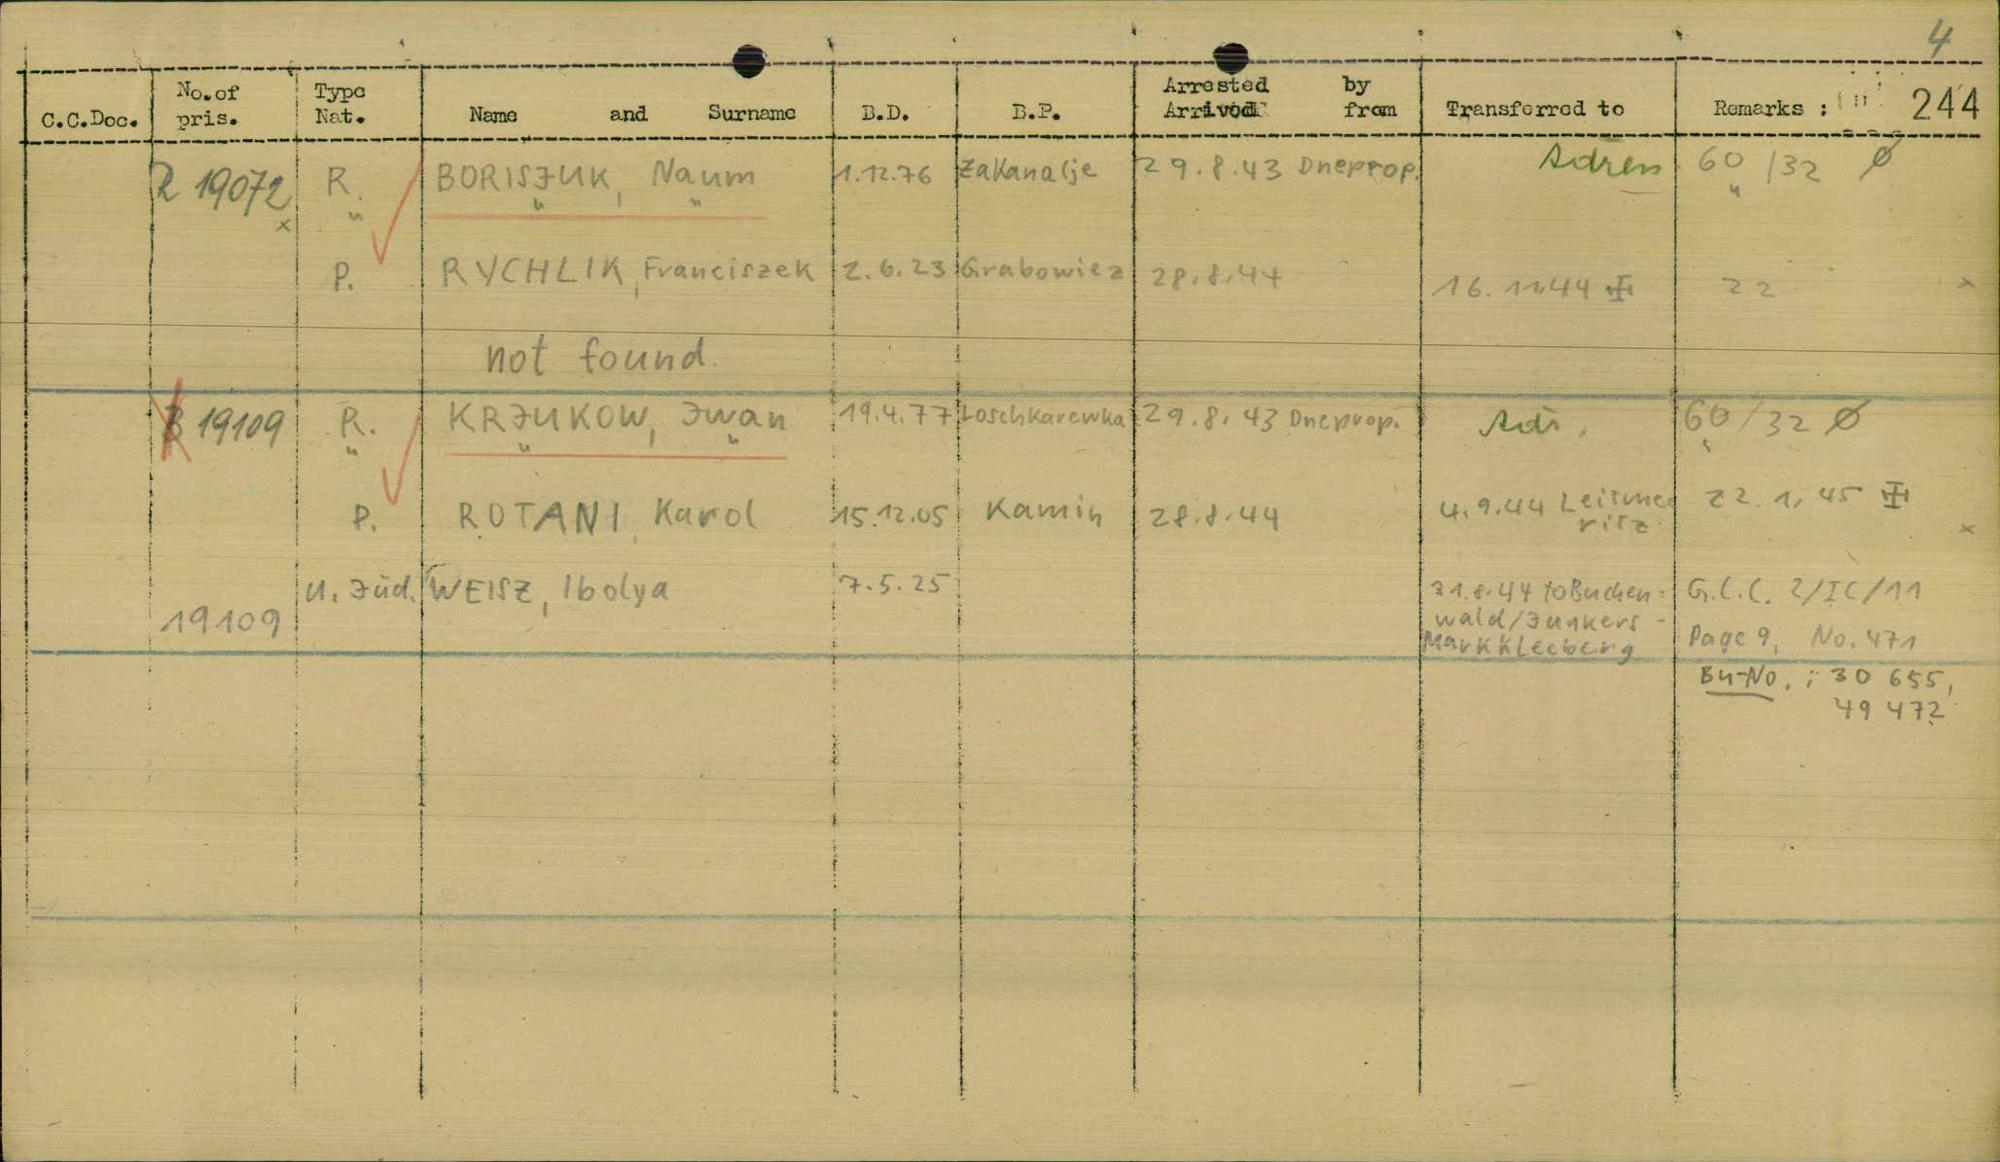 4
C.C.Doc. No.of pris. Type Nat. Name and Surname B.D. B.P. Arrested by Arrived from Transferred to Remarks : 244
R 19072 R. BORISJUK, Naum 1.12.76 Zakanalje 29.8.43 Dneprop. Adren 60/32 Ø
x " " " "
P. RYCHLIK, Franciszek 2.6.23 Grabowiez 28.8.44 16.11.44 22 x
not found.
19109 R. KRJUKOW, Jwan 19.4.77 Loschkarewka 29.8.43 Dneprop. Adr. 60/32 Ø
" " " "
P. ROTANI, Karol 15.12.05 Kamin 28.8.44 4.9.44 Leitmeritz 22.1.45 x
19109 U. Jüd. WEISZ, Ibolya 7.5.25 31.8.44 to Buchen=
wald/Junkers-
Markkleeberg
G.C.C. 2/IC/11
Page 9, No. 471
Bu-No. : 30 655,
49 472